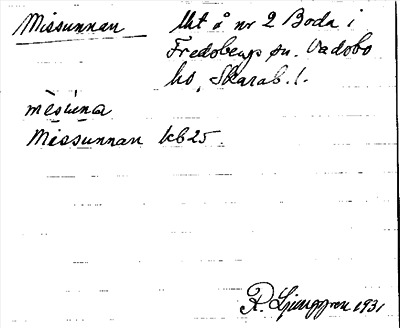 Missunnan Utt å nr 2 Boda i
Fredsbergs sn. Vadsbo
hd, Skarab. l.
mesuna
Missunnan kb25.
R. Ljunggren 1931